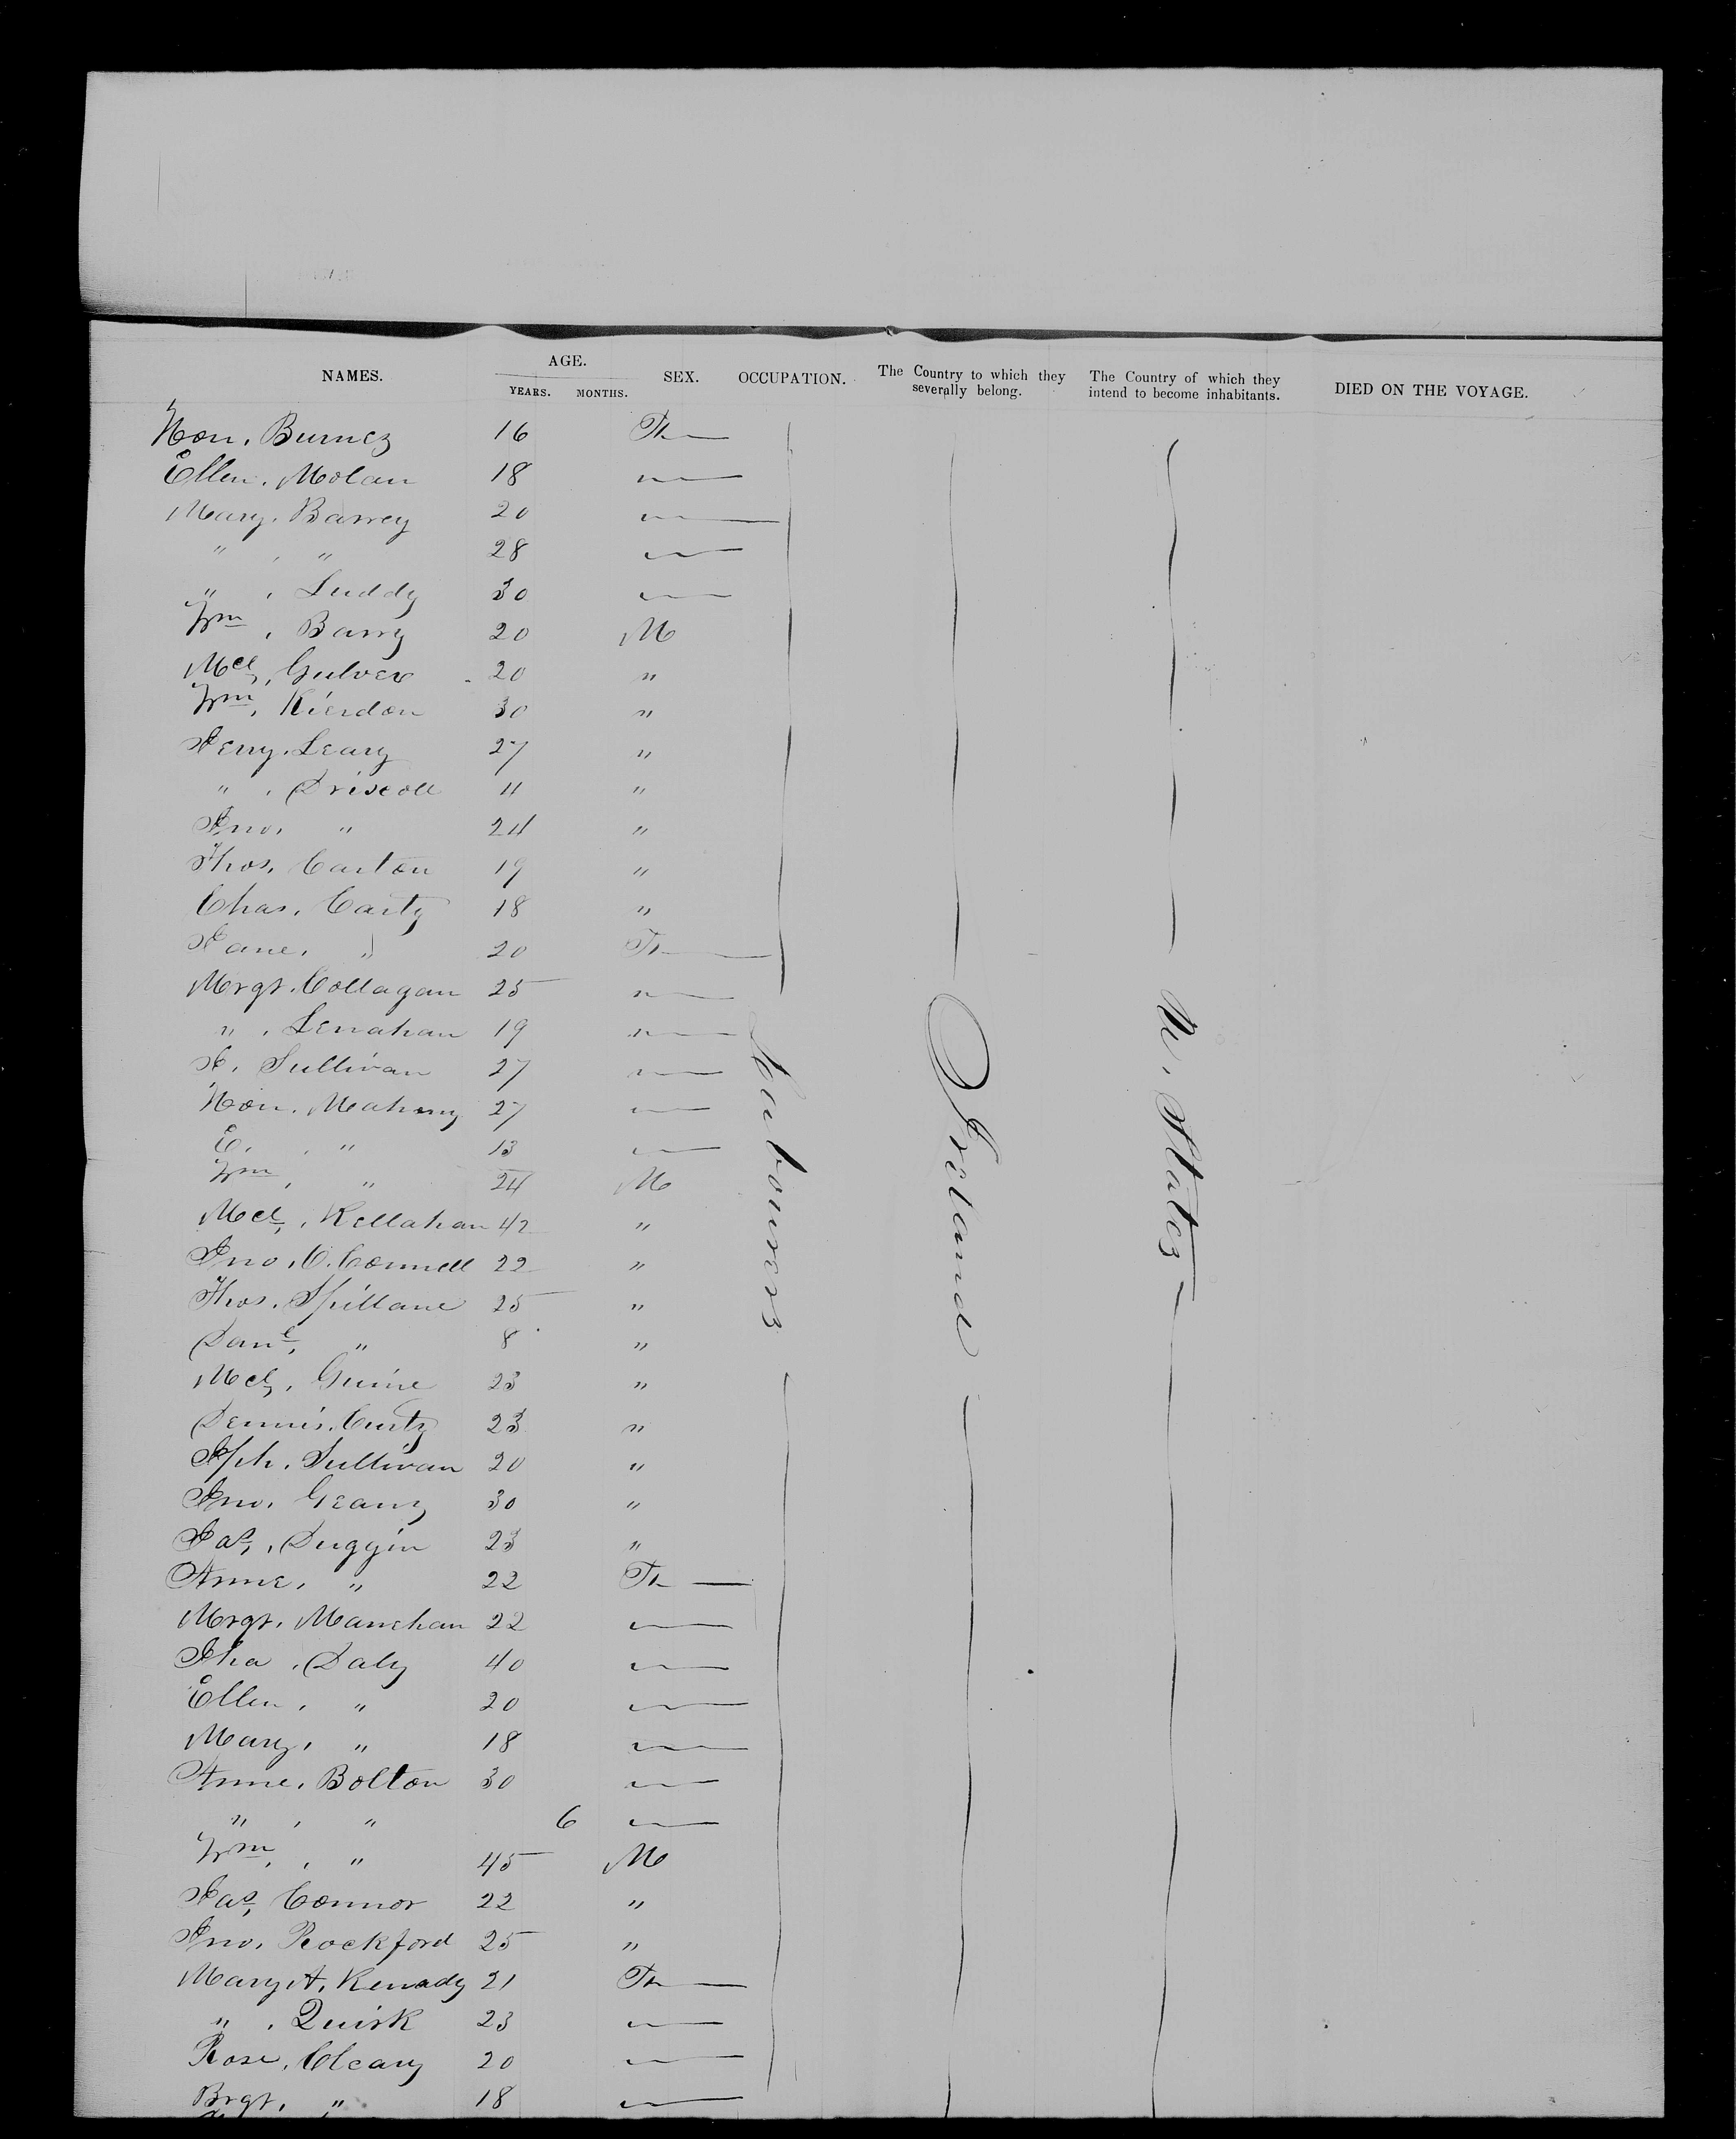 NAMES. AGE. YEARS. MONTHS. SEX. OCCUPATION. The Country to which they severally belong. The Country of which they intend to become inhabitants. DIED ON THE VOYAGE.
Hon. Burnes 16 F
Ellen. Molan 18 "
Mary. Barrey 20 "
" . " 28 "
" . Luddy 30 "
Wm . Barry 20 M
Mcl, Gulver 20 "
Wm . Kierdon 30 "
Jerry. Leary 27 "
" . Driscoll 11 "
Jno. " 24 "
Thos. Carton 19 "
Chas. Carty 18 "
Jane. " 20 F
Mrgt. Collagan 25 "
" . Lenahan 19 "
J. Sullivan 27 "
Hon. Mahony 27 "
E. . " 13 "
Wm . " 24 M
Mcl, . Kellahan 42 "
Jno. O. Connell 22 "
Thos. Spillane 25 "
Danl, " 8 "
Mcl, . Guine 23 "
Dennis. Curty 23 "
Jph. Sullivan 20 "
Jno. Geany 30 "
Jas, . Duggin 23 "
Anne. " 22 F
Mrgt. Manehan 22 "
Jha . Daly 40 "
Ellen. " 20 "
Mary. " 18 "
Anne. Bolton 30 "
" . " 6 "
Wm . " 45 M
Jas, Connor 22 "
Jno. Rockford 25 "
Mary A. Kenady 21 F
" . Quirk 23 "
Rose. Cleary 20 "
Brgt. " 18 "
Labourers
Ireland
U. States